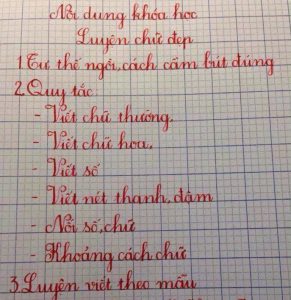 Nội dung khóa học
Luyện chữ đẹp
1. Tư thế ngồi, cách cầm bút đúng
2. Quy tắc
- Viết chữ thường.
- Viết chữ hoa.
- Viết số
- Viết nét thanh, đậm
- Nối số, chữ
- Khoảng cách chữ
3. Luyện viết theo mẫu